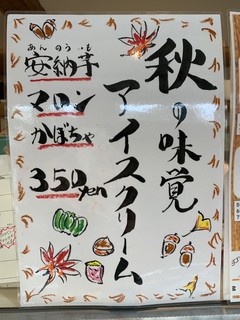 秋の味覚
アイスクリーム
あんのういも
安納芋
マロン
かぼちゃ
350yen